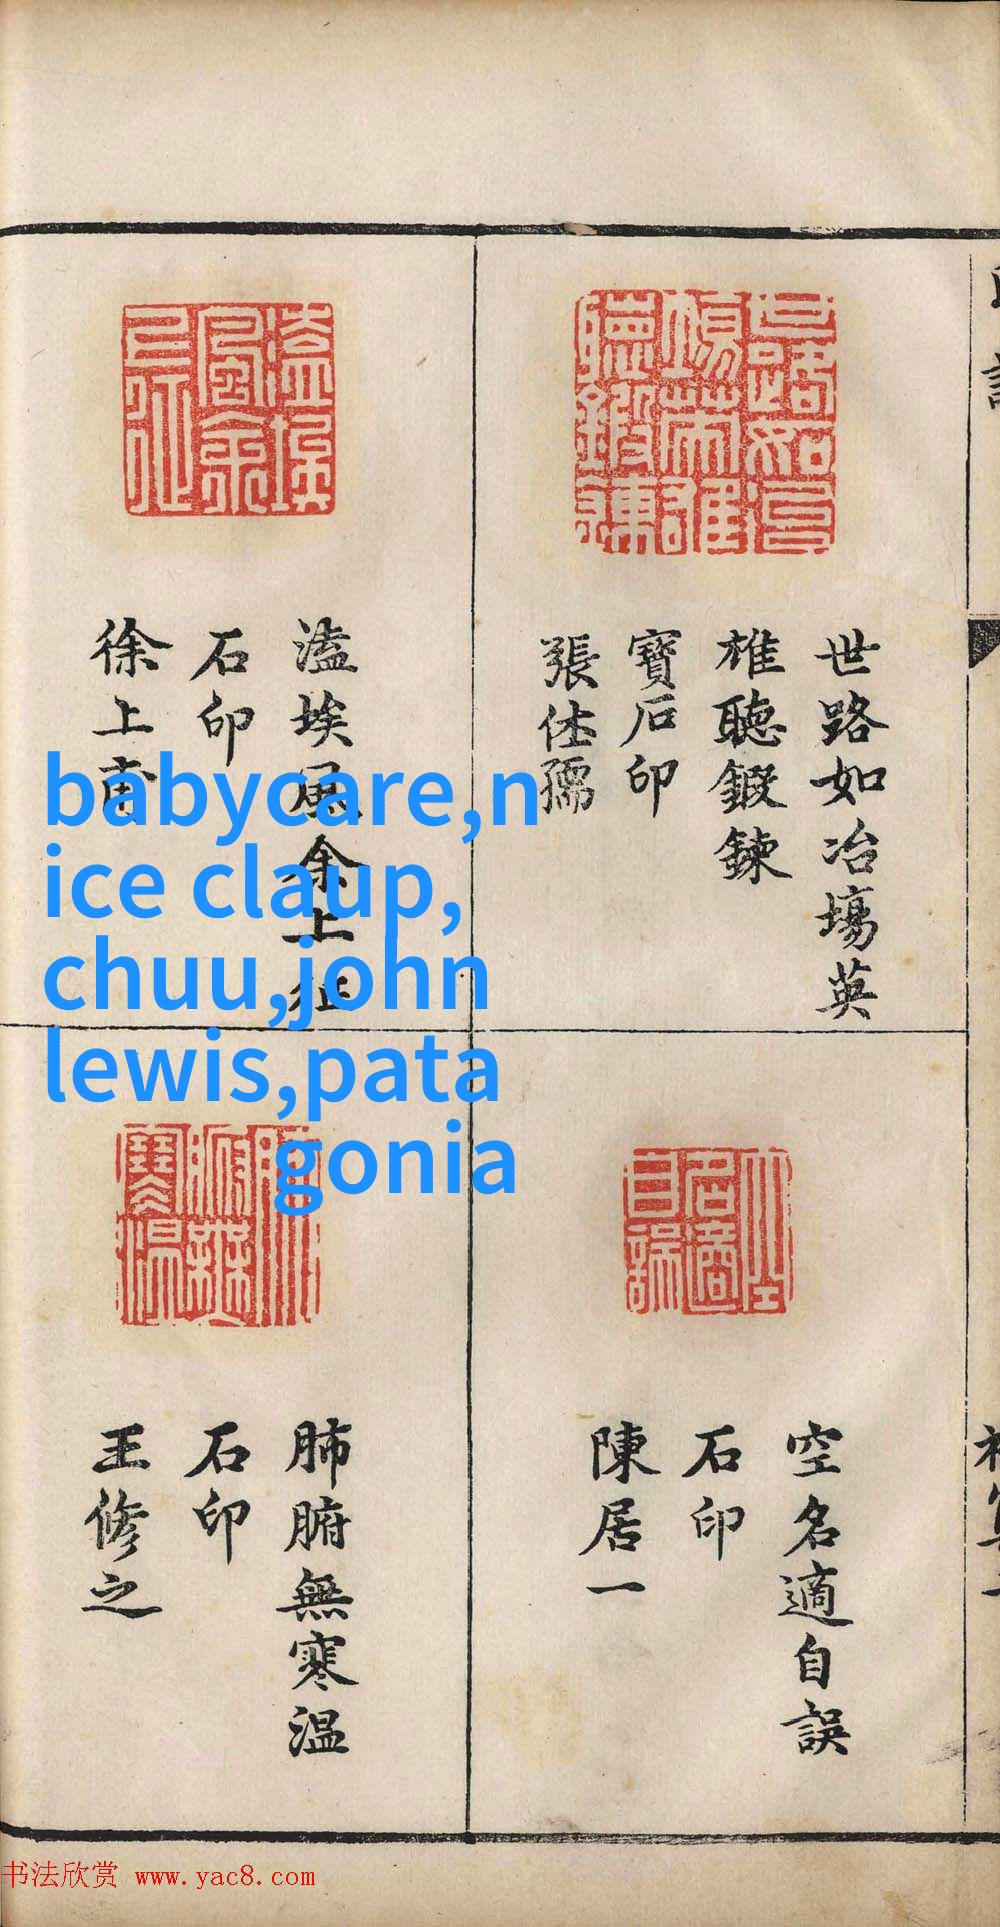 世路如冶場英
雄聽鍛鍊
寶石印
張仕孺
溘埃風余上征
石印
徐上甫
空名適自誤
石印
陳居一
肺腑無寒溫
石印
王修之
babycare,n
ice claup,
chuu,john
lewis,pata
gonia
书法欣赏 www.yac8.com